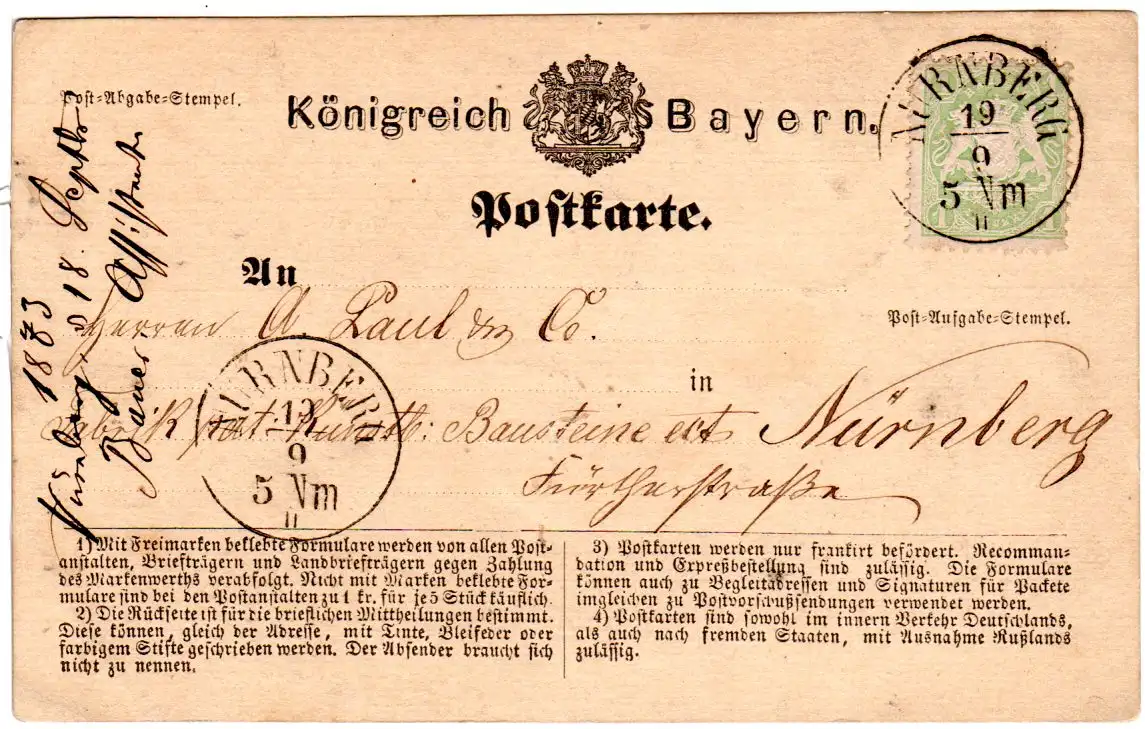 Post-Abgabe-Stempel.
Königreich Bayern.
NÜRNBERG
19
9
5 Nm
II
Postkarte.
An
Post-Aufgabe-Stempel.
Herren A. Paul & Co.
in
Fabrik pat. Kunstb: Bausteine ect Nürnberg
Fürtherstraße
NÜRNBERG
19
9
5 Nm
II
1873
Nürnberg, 18. Septbr
Bauer Assistent
1) Mit Freimarken beklebte Formulare werden von allen Post-
anstalten, Briefträgern und Landbriefträgern gegen Zahlung
des Markenwerths verabfolgt. Nicht mit Marken beklebte For-
mulare sind bei den Postanstalten zu 1 kr. für je 5 Stück käuflich.
2) Die Rückseite ist für die brieflichen Mittheilungen bestimmt.
Diese können, gleich der Adresse, mit Tinte, Bleifeder oder
farbigem Stifte geschrieben werden. Der Absender braucht sich
nicht zu nennen.
3) Postkarten werden nur frankirt befördert. Recomman-
dation und Expreßbestellung sind zulässig. Die Formulare
können auch zu Begleitadressen und Signaturen für Packete
imgleichen zu Postvorschußsendungen verwendet werden.
4) Postkarten sind sowohl im innern Verkehr Deutschlands,
als auch nach fremden Staaten, mit Ausnahme Rußlands
zulässig.